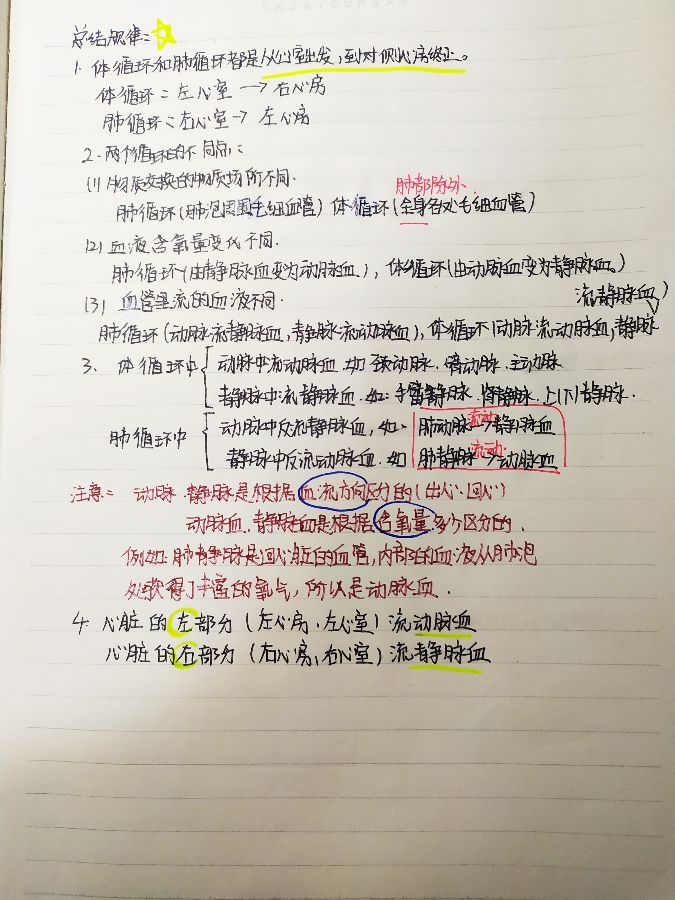 总结规律：
1. 体循环和肺循环都是从心室出发，到对侧心房终止。
体循环：左心室 → 右心房
肺循环：右心室 → 左心房
2. 两个循环的不同点：
(1) 物质交换的物质场所不同.
肺部除外.
肺循环(肺泡周围毛细血管) 体循环(全身各处毛细血管)
(2) 血液含氧量变化不同.
肺循环(由静脉血变为动脉血.)，体循环(由动脉血变为静脉血。)
(3) 血管里流的血液不同.
流静脉血)
肺循环(动脉流静脉血，静脉流动脉血)，体循环(动脉流动脉血，静脉
3、体循环中 动脉中流动脉血. 如颈动脉. 肾动脉. 主动脉
静脉中流静脉血. 如：手臂静脉. 肾静脉. 上(下)静脉.
肺循环中 动脉中反流静脉血，如：肺动脉 流动→ 静脉血
静脉中反流动脉血. 如 肺静脉 流动→ 动脉血
注意：动脉. 静脉是根据血流方向区分的(出心. 回心)
动脉血. 静脉血是根据含氧量多少区分的.
例如：肺静脉是回心脏的血管，内部的血液从肺泡
处获得了丰富的氧气，所以是动脉血.
4. 心脏的左部分（左心房. 左心室）流动脉血
心脏的右部分（右心房，右心室）流静脉血